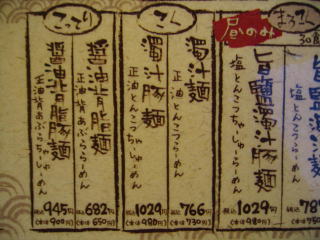 こってり
醤油背脂豚麺
正油背あぶらちゃーしゅーめん
税込945円
(本体900円)
醤油背脂麺
正油背あぶららーめん
税込682円
(本体650円)
こく
濁汁豚麺
正油とんこつちゃーしゅーめん
税込1029円
(本体980円)
濁汁麺
正油とんこつらーめん
税込766円
(本体730円)
昼のみ
旨鹽濁汁豚麺
塩とんこつちゃーしゅーめん
税込1029円
(本体980円)
まろ
30食
旨鹽
塩とん
税込
(本体750